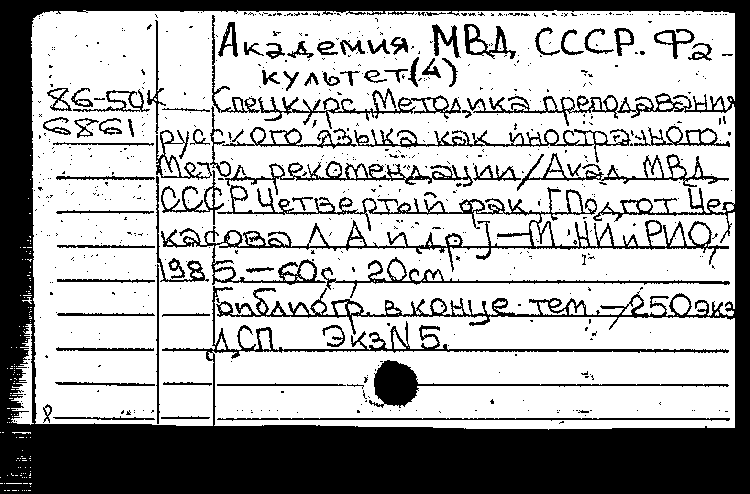 Академия МВД СССР. Фа-
культет (4)
86-50к Спецкурс "Методика преподавания
6861 русского языка как иностранного":
Метод. рекомендации / Акад. МВД
СССР. Четвертый фак.; [Подгот. Чер-
касова Л. А. и др.]. — М.: НИ и РИО,
1985. — 60с.; 20см.
Библиогр. в конце тем. — 250 экз
ДСП. Экз N 5.
8